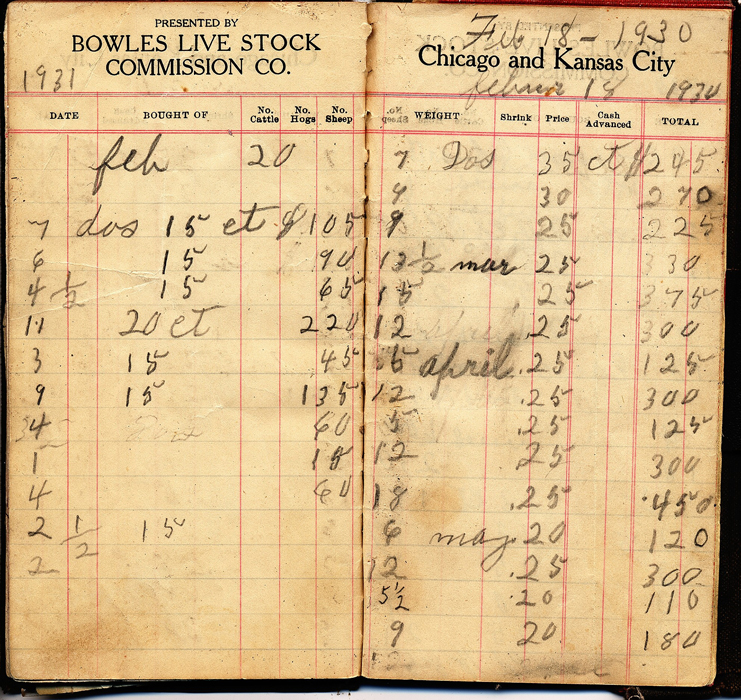 PRESENTED BY
BOWLES LIVE STOCK
COMMISSION CO.
1931
DATE BOUGHT OF No. Cattle No. Hogs No. Sheep
feb 20
7 dos 15 ct $ 105
6 15 90
4 1/2 15 65
11 20 ct 220
3 15 45
9 15 135
4 60
1 15
4 60
2 1/2 15
2
Feb 18 - 1930
Chicago and Kansas City
18 1930
WEIGHT Shrink Price Cash Advanced TOTAL
7 Dos 35 ct $ 245
9 30 270
9 25 225
13 1/2 mar 25 330
15 25 375
12 .25 300
5 april .25 125
12 .25 300
5 .25 125
12 25 300
18 .25 450
6 may 20 120
12 .25 300
5 1/2 .20 110
9 20 180